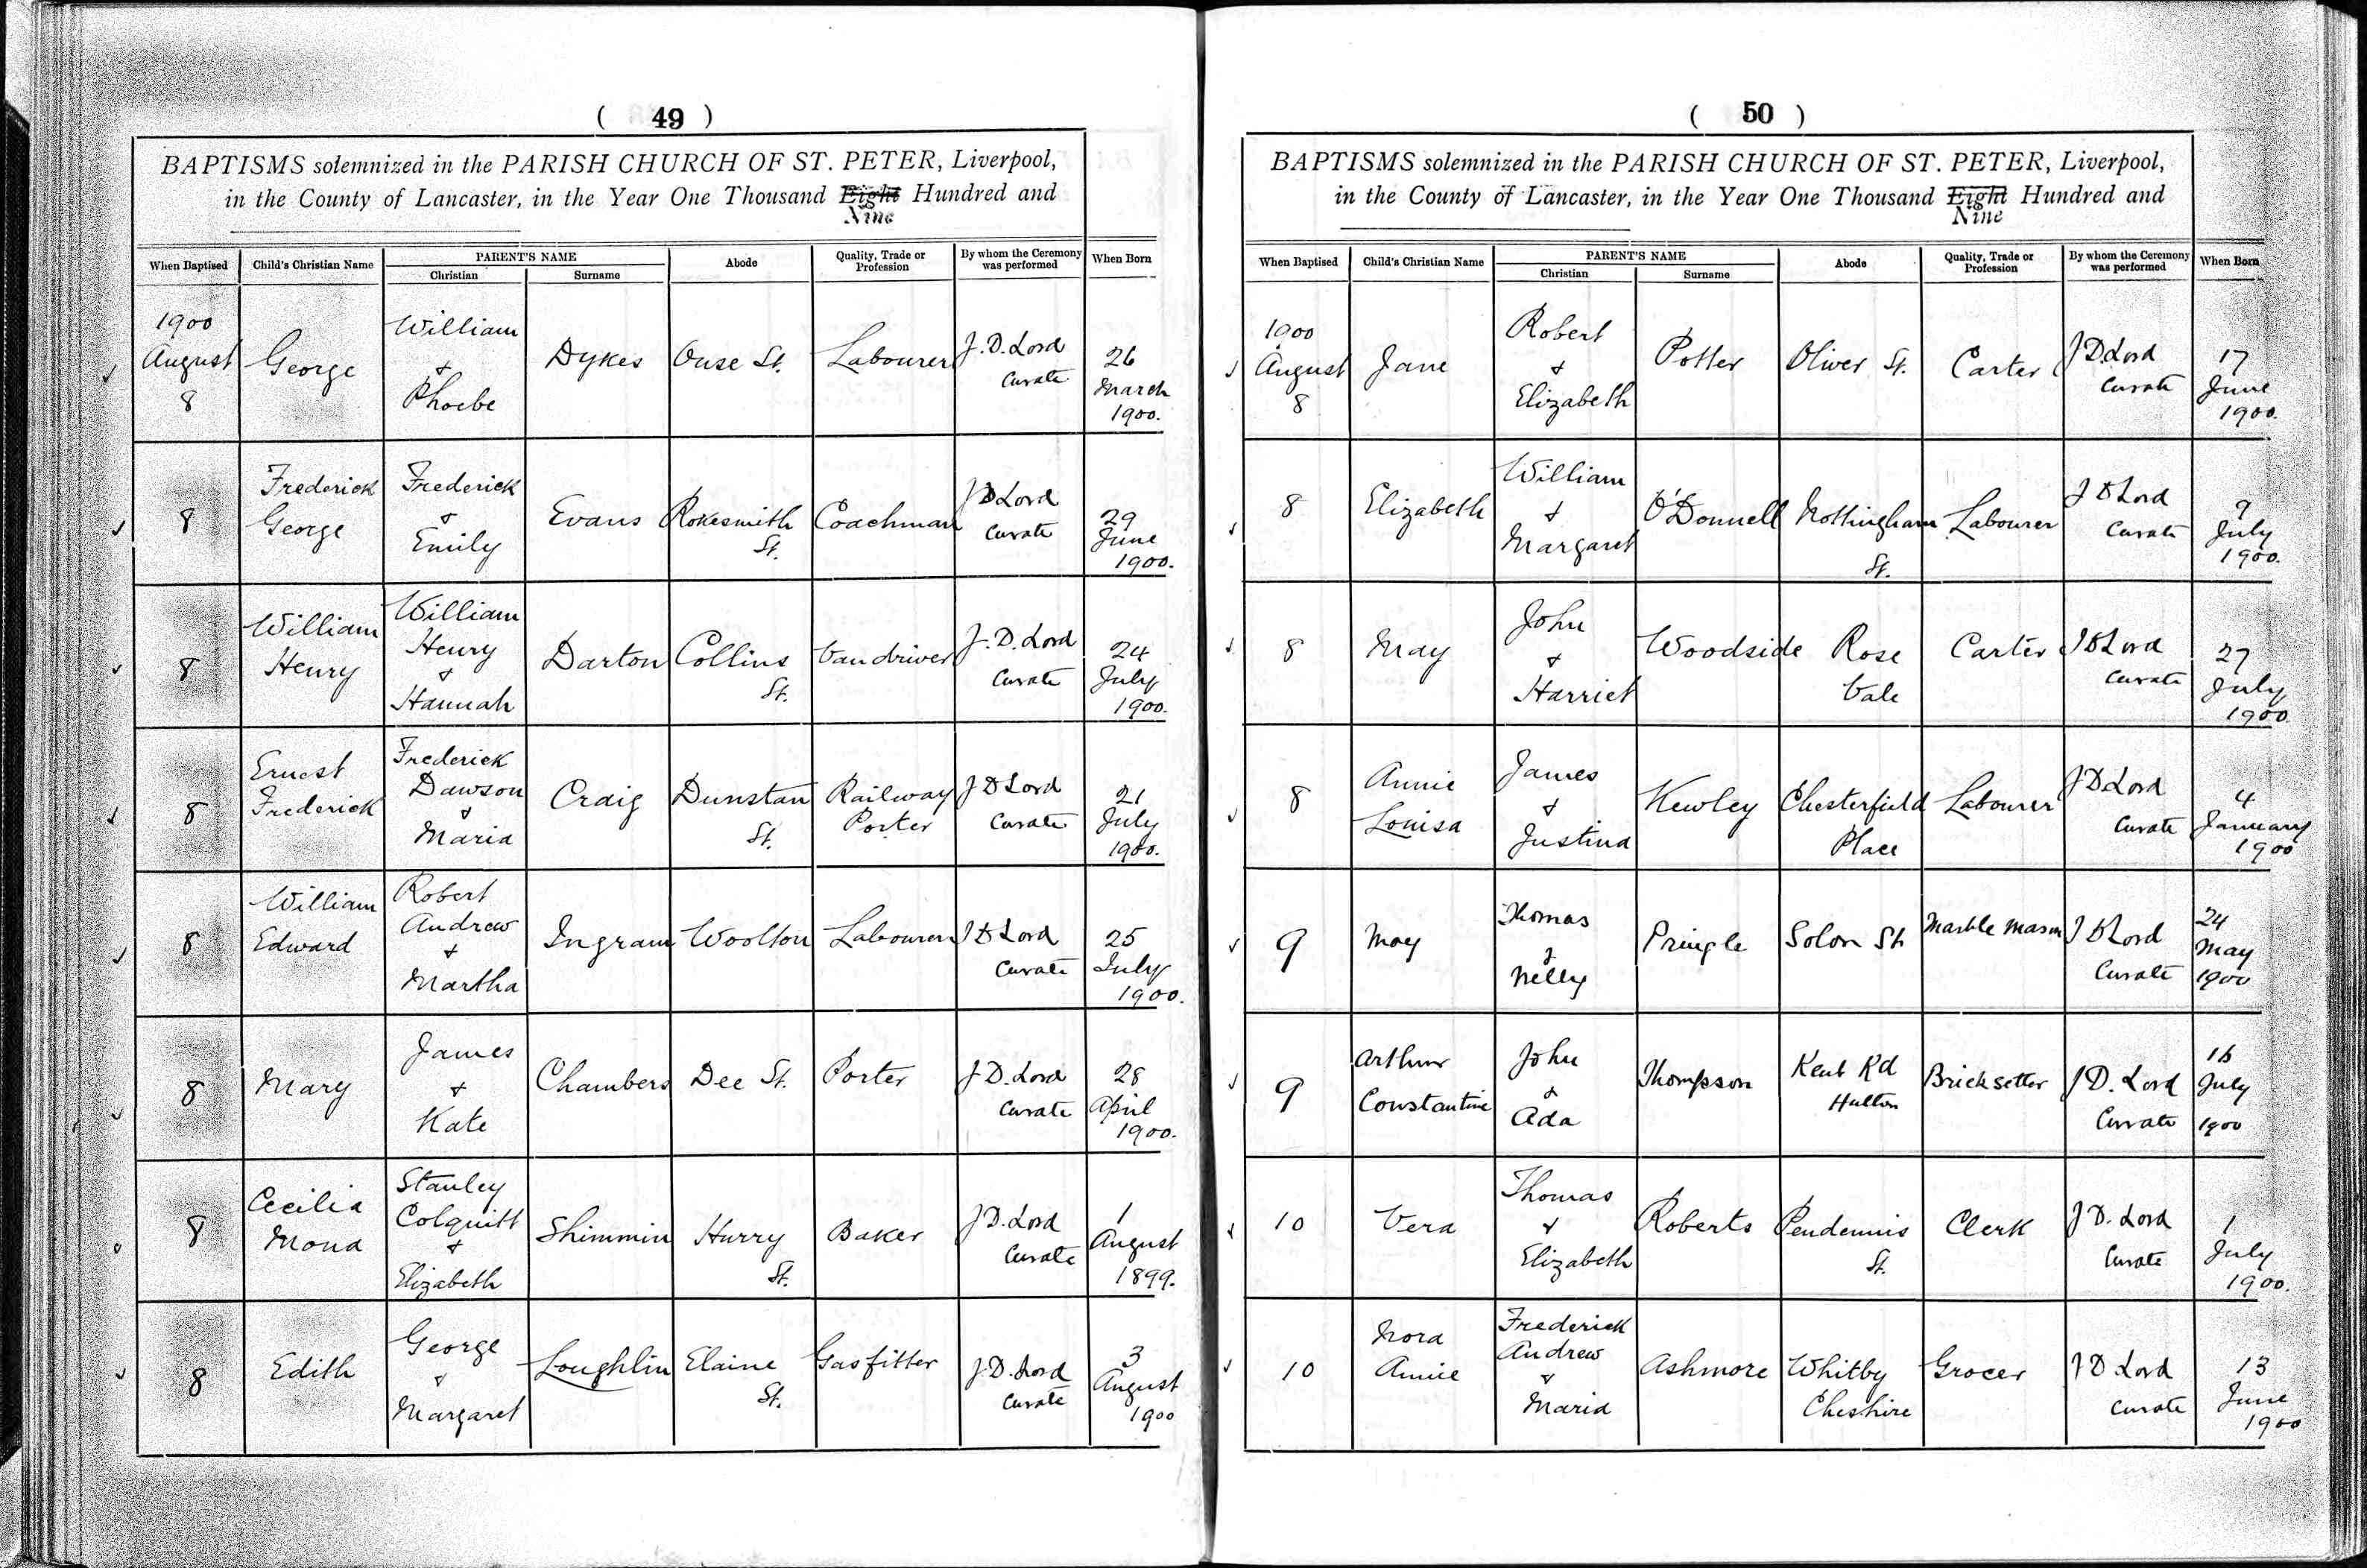 ( 49 )
BAPTISMS solemnized in the PARISH CHURCH OF ST. PETER, Liverpool,
in the County of Lancaster, in the Year One Thousand Eight Hundred and
Nine
When Baptised Child's Christian Name PARENT'S NAME Christian Surname Abode Quality, Trade or Profession By whom the Ceremony was performed When Born
1900 August 8 George William & Phoebe Dykes Ouse St. Labourer J. D. Lord Curate 26 March 1900.
8 Frederick George Frederick & Emily Evans Rokesmith St. Coachman J D Lord Curate 29 June 1900.
8 William Henry William Henry & Hannah Darton Collins St. Vandriver J. D. Lord Curate 24 July 1900.
8 Ernest Frederick Frederick Dawson & Maria Craig Dunstan St. Railway Porter J D Lord Curate 21 July 1900.
8 William Edward Robert Andrew & Martha Ingram Woolton Labourer J D Lord Curate 25 July 1900.
8 Mary James & Kate Chambers Dee St. Porter J D. Lord Curate 28 April 1900.
8 Cecilia Mona Stanley Colquitt & Elizabeth Shimmin Hurry St. Baker J D. Lord Curate 1 August 1899.
8 Edith George & Margaret Loughlin Elaine St. Gasfitter J. D. Lord Curate 3 August 1900
( 50 )
BAPTISMS solemnized in the PARISH CHURCH OF ST. PETER, Liverpool,
in the County of Lancaster, in the Year One Thousand Eight Hundred and
Nine
When Baptised Child's Christian Name PARENT'S NAME Christian Surname Abode Quality, Trade or Profession By whom the Ceremony was performed When Born
1900 August 8 Jane Robert & Elizabeth Potter Oliver St. Carter J D. Lord Curate 17 June 1900.
8 Elizabeth William & Margaret O'Donnell Nottingham St. Labourer J D Lord Curate 9 July 1900.
8 May John & Harriet Woodside Rose Vale Carter J D Lord Curate 27 July 1900.
8 Annie Louisa James & Justina Kewley Chesterfield Place Labourer J D Lord Curate 4 January 1900
9 May Thomas & Nelly Pringle Solon St Marble Mason J D Lord Curate 24 May 1900
9 Arthur Constantine John & Ada Thompson Kent Rd Bricksetter J D. Lord Curate 16 July 1900
10 Vera Thomas & Elizabeth Roberts Pendennis St. Clerk J D. Lord Curate 1 July 1900.
10 Nora Annie Frederick Andrew & Maria Ashmore Whitby Cheshire Grocer J D Lord Curate 13 June 1900